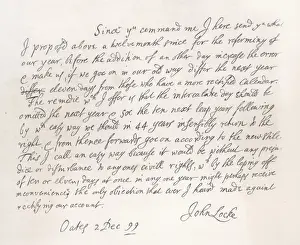 Since yu command me I here send yu what
I propos'd above a twelvemonth since for the reforming of
our year, before the addition of an other day increase the error
& make us if we goe on in our old way differ the next year
eleven days from those who have a more rectified Calendar.
The remedie wch I offer is that the intercalar day should be
omitted the next year & soe the ten next leap years following
by wch easy way we should in 44 years insensibly return to the
right & from thence forwards goe on according to the new stile
This I call an easy way because it would be without any preju
dice or disturbance to any ones civill rights, wch by the loping off
of ten or eleven days at once in any one year might perhaps receive
inconvenience the only objection that ever I heard made against
rectifying our account.
John Locke
Oates 2 Dec 99